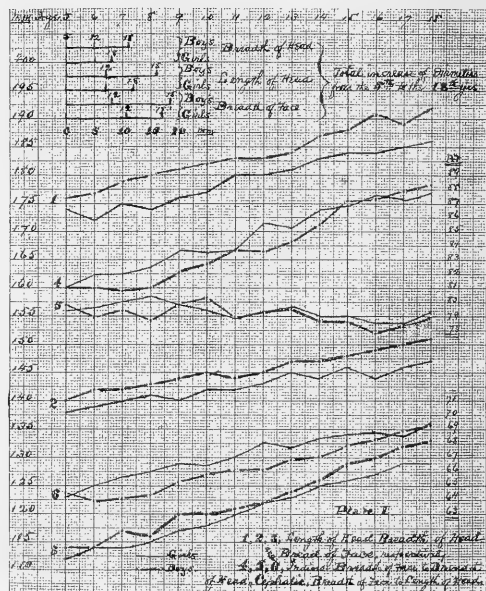 mm. Age 5 6 7 8 9 10 11 12 13 14 15 16 17 18
5 12 18
Boys
Girls
Breadth of Head
Boys
Girls
Length of Head
Boys
Girls
Breadth of Face
Total increase of Diameters
from the 5th to the 18th year
0 5 10 15 20 mm
200
195
190
185
180
175
170
165
160
155
150
145
140
135
130
125
120
115
110
1
4
5
2
6
3
89
88
87
86
85
84
83
82
81
80
79
78
71
70
69
68
67
66
65
64
63
Plate I
1, 2, 3, Length of Head, Breadth of Head
Bread of Face, respectively
4, 5, 6, Breadth of Face to Breadth
of Head, Cephalic, Breadth of Face to Length of Head
Girls
Boys